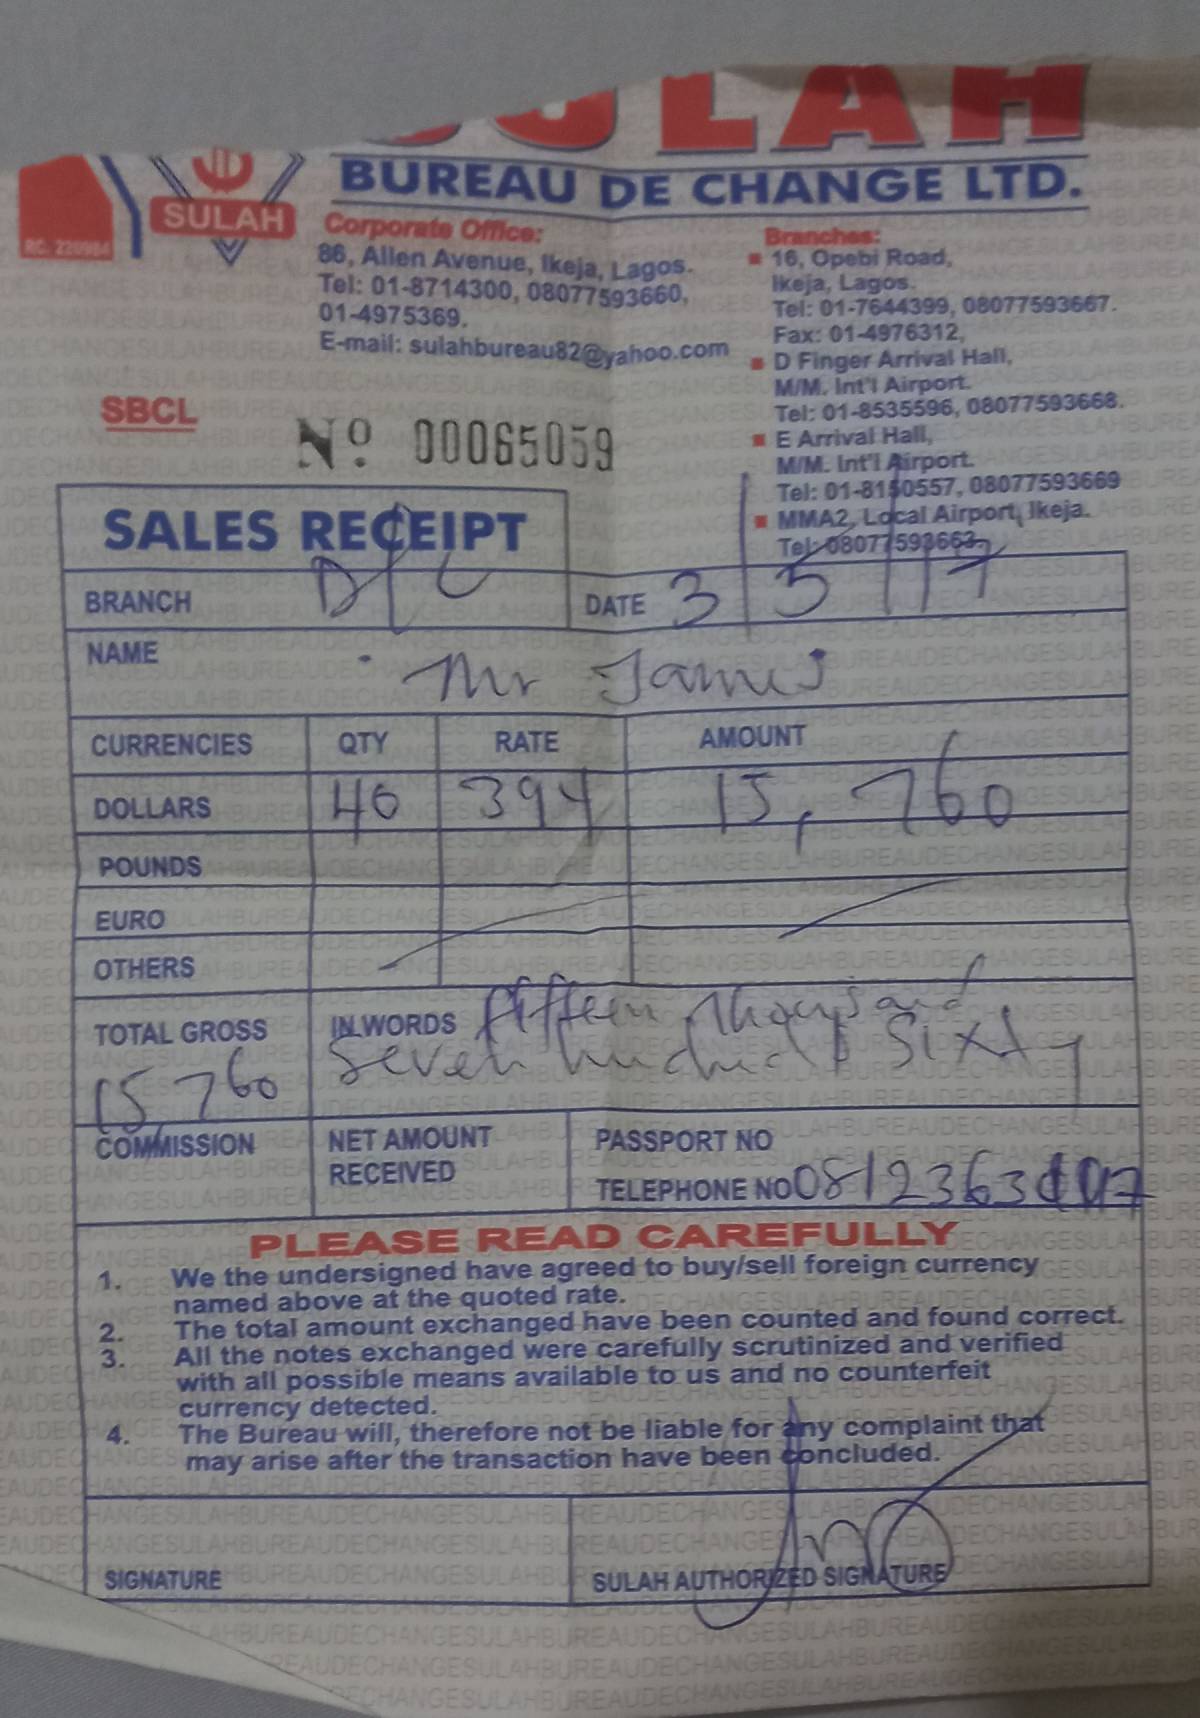 SULAH
BUREAU DE CHANGE LTD.
SULAH
RC. 220984
Corporate Office:
86, Allen Avenue, Ikeja, Lagos.
Tel: 01-8714300, 08077593660,
01-4975369.
E-mail: sulahbureau82@yahoo.com
Branches:
16, Opebi Road,
Ikeja, Lagos.
Tel: 01-7644399, 08077593667.
Fax: 01-4976312,
D Finger Arrival Hall,
M/M. Int'l Airport.
Tel: 01-8535596, 08077593668.
E Arrival Hall,
M/M. Int'l Airport.
Tel: 01-8150557, 08077593669
MMA2, Local Airport, Ikeja.
Tel: 08077593663.
SBCL
No 00065059
SALES RECEIPT
BRANCH
DATE 3/5/17
NAME Mr James
CURRENCIES QTY RATE AMOUNT
DOLLARS 40 394 15,760
POUNDS
EURO
OTHERS
TOTAL GROSS IN WORDS fifteen thousand
15760 seven hundred & sixty
COMMISSION NET AMOUNT RECEIVED PASSPORT NO
TELEPHONE NO
PLEASE READ CAREFULLY
1. We the undersigned have agreed to buy/sell foreign currency
named above at the quoted rate.
2. The total amount exchanged have been counted and found correct.
3. All the notes exchanged were carefully scrutinized and verified
with all possible means available to us and no counterfeit
currency detected.
4. The Bureau will, therefore not be liable for any complaint that
may arise after the transaction have been concluded.
SIGNATURE SULAH AUTHORIZED SIGNATURE